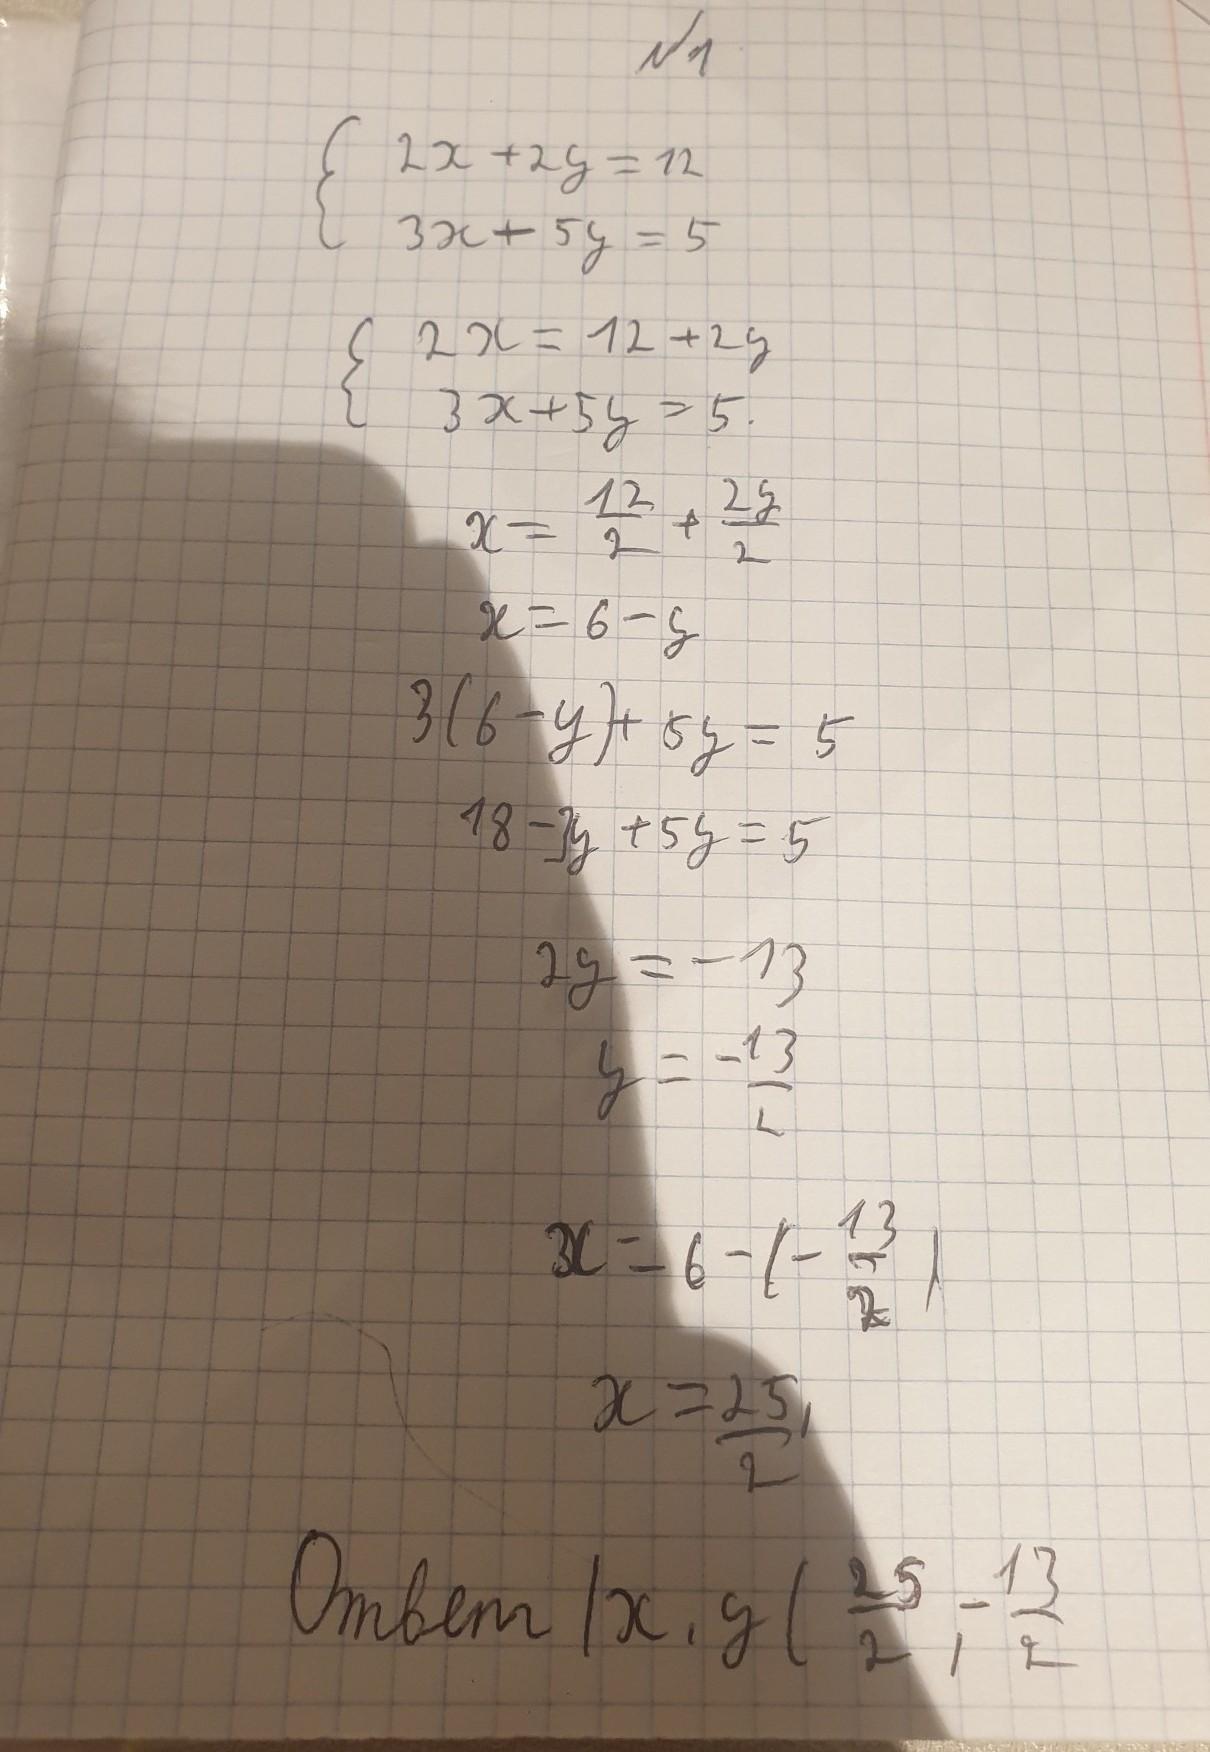 №1
2x + 2y = 12
3x + 5y = 5
2x = 12 + 2y
3x + 5y = 5.
x = 12/2 + 2y/2
x = 6 - y
3(6 - y) + 5y = 5
18 - 3y + 5y = 5
2y = -13
y = -13/2
x = 6 - (-13/2)
x = 25/2
Ответ (x, y ( 25/2, -13/2